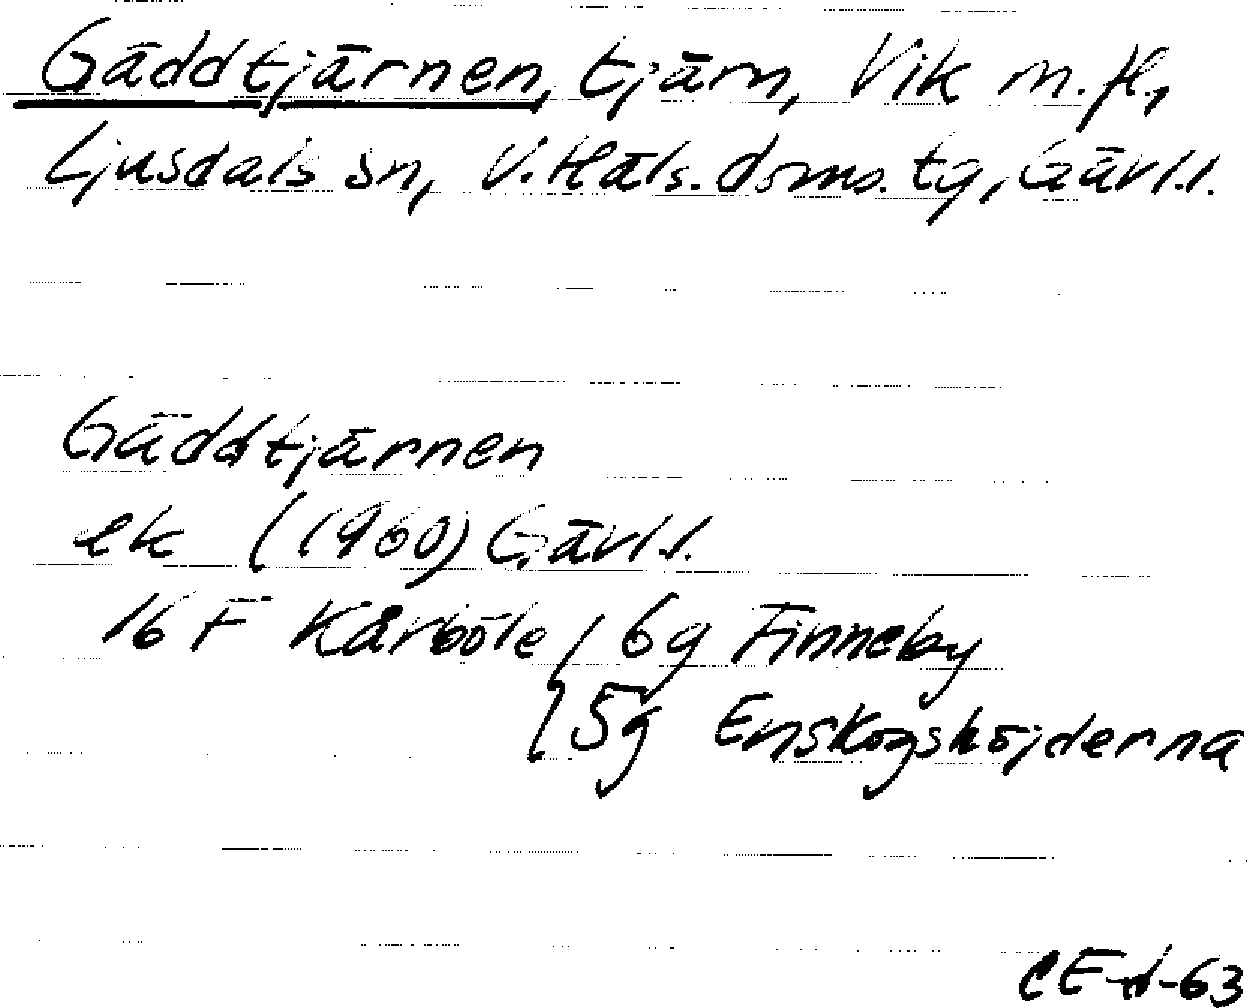 Gäddtjärnen, tjärn, Vik m.fl.,
Ljusdals sn, V. Häls. doms. tg, Gävl.l.
Gäddtjärnen
ek (1960) Gävl.l.
16 F Kårböle / 6g Finneby
5g Enskogshöjderna
CE-d-63